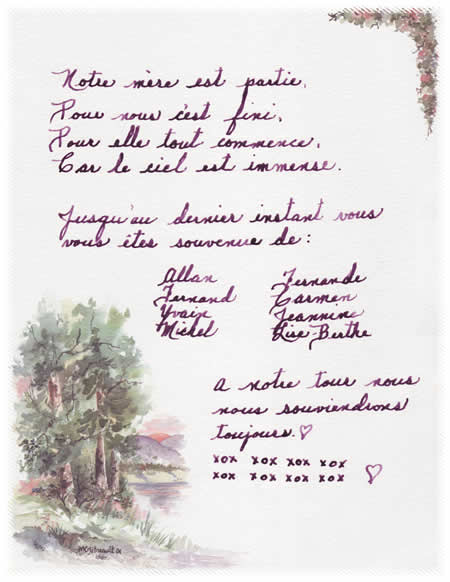 Notre mère est partie,
Pour nous c'est fini,
Pour elle tout commence,
Car le ciel est immense.
Jusqu'au dernier instant vous
vous êtes souvenue de:
Allan Fernande
Fernand Carmen
Yvain Jeannine
Michel Lise-Berthe
A notre tour nous
nous souviendrons
toujours.♡
xox xox xox xox
xox xox xox xox ♡